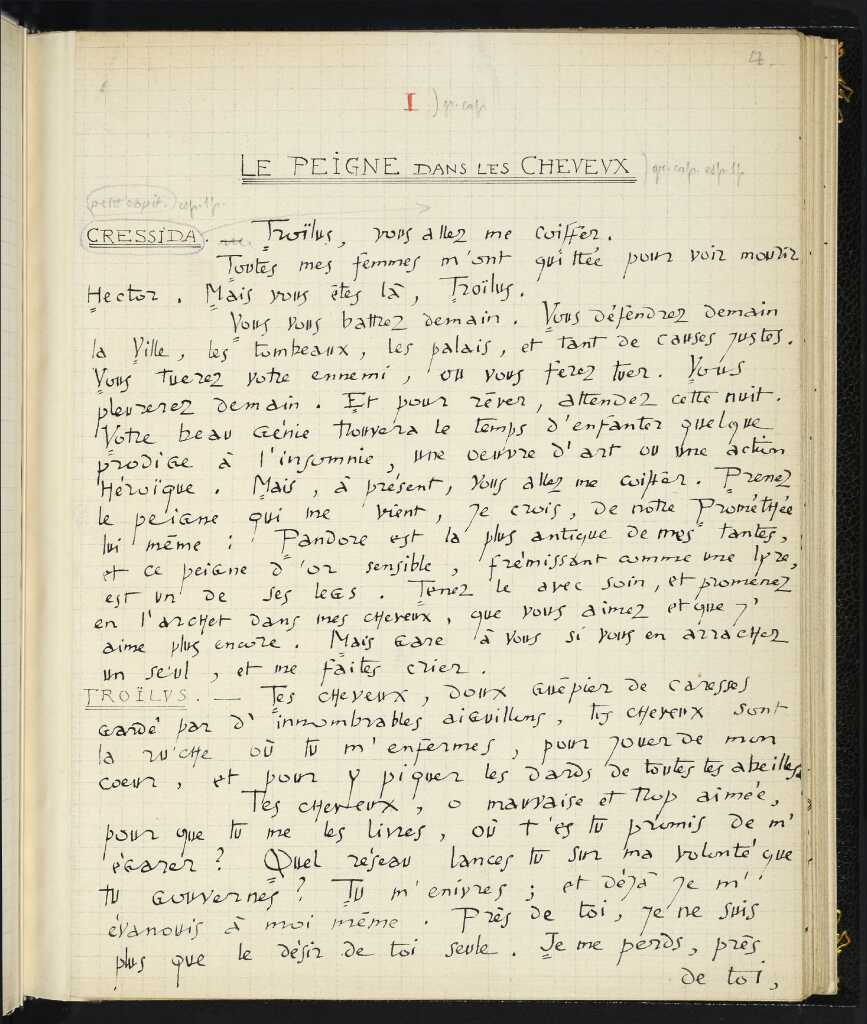 4.
I ) gr. cap.
LE PEIGNE DANS LES CHEVEVX ) gr. cap. esp. 1p
petit capit. esp. 1p.
CRESSIDA. — Troïlus, vous allez me coiffer.
Toutes mes femmes m'ont quittée pour voir mourir
Hector. Mais vous êtes là, Troïlus.
Vous vous battrez demain. Vous défendrez demain
la Ville, les tombeaux, les palais, et tant de causes justes.
Vous tuerez votre ennemi, ou vous ferez tuer. Vous
pleurerez demain. Et pour rêver, attendez cette nuit.
Votre beau génie trouvera le temps d'enfanter quelque
prodige à l'insomnie, une oeuvre d'art ou une action
Héroïque. Mais, à présent, vous allez me coiffer. Prenez
le peigne qui me vient, je crois, de notre Prométhée
lui même : Pandore est la plus antique de mes tantes,
et ce peigne d'or sensible, frémissant comme une lyre,
est un de ses legs. Tenez le avec soin, et promenez
en l'archet dans mes cheveux, que vous aimez et que j'
aime plus encore. Mais gare à vous si vous en arrachez
un seul, et me faites crier.
TROÏLVS. — Tes cheveux, doux guêpier de caresses
gardé par d'innombrables aiguillons, tes cheveux sont
la ruche où tu m'enfermes, pour jouer de mon
coeur, et pour y piquer les dards de toutes tes abeilles.
Tes cheveux, o mauvaise et trop aimée,
pour que tu me les livres, où t'es tu promis de m'
égarer ? Quel réseau lances tu sur ma volonté que
tu gouvernes ? Tu m'enivres ; et déjà je m'
évanouis à moi même. Près de toi, je ne suis
plus que le désir de toi seule. Je me perds, près
de toi,